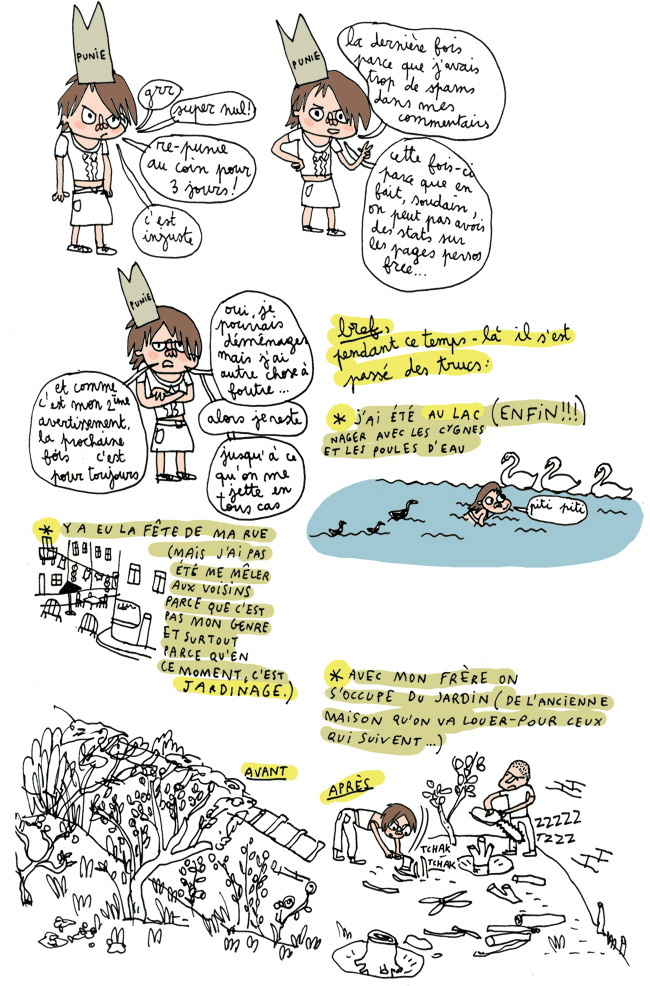 PUNIE
grr
super nul!
re-punie
au coin pour
3 jours!
c'est
injuste
PUNIE
la dernière fois
parce que j'avais
trop de spams
dans mes
commentairs
cette fois-ci
parce que en
fait, soudain,
on peut pas avois
des stats sur
les pages persos
free...
PUNIE
oui, je
pourrais
déménager
mais j'ai
autre chose à
foutre...
et comme
c'est mon 2ème
avertisement,
la prochaine
fois c'est
pour toujours
alors je reste
jusqu'à ce
qu'on me
jette en
tous cas
bref,
pendant ce temps-là il s'est
passé des trucs:
* J'AI ÉTÉ AU LAC (ENFIN!!!)
NAGER AVEC LES CYGNES
ET LES POULES D'EAU
piti piti
* Y A EU LA FÊTE DE MA RUE
(MAIS J'AI PAS
ÉTÉ ME MÊLER
AUX VOISINS
PARCE QUE C'EST
PAS MON GENRE
ET SURTOUT
PARCE QU'EN
CE MOMENT, C'EST
JARDINAGE.)
* AVEC MON FRÈRE ON
S'OCCUPE DU JARDIN (DE L'ANCIENNE
MAISON QU'ON VA LOUER-POUR CEUX
QUI SUIVENT...)
AVANT
APRÈS
ZZZZZ
ZZZZ
TCHAK
TCHAK